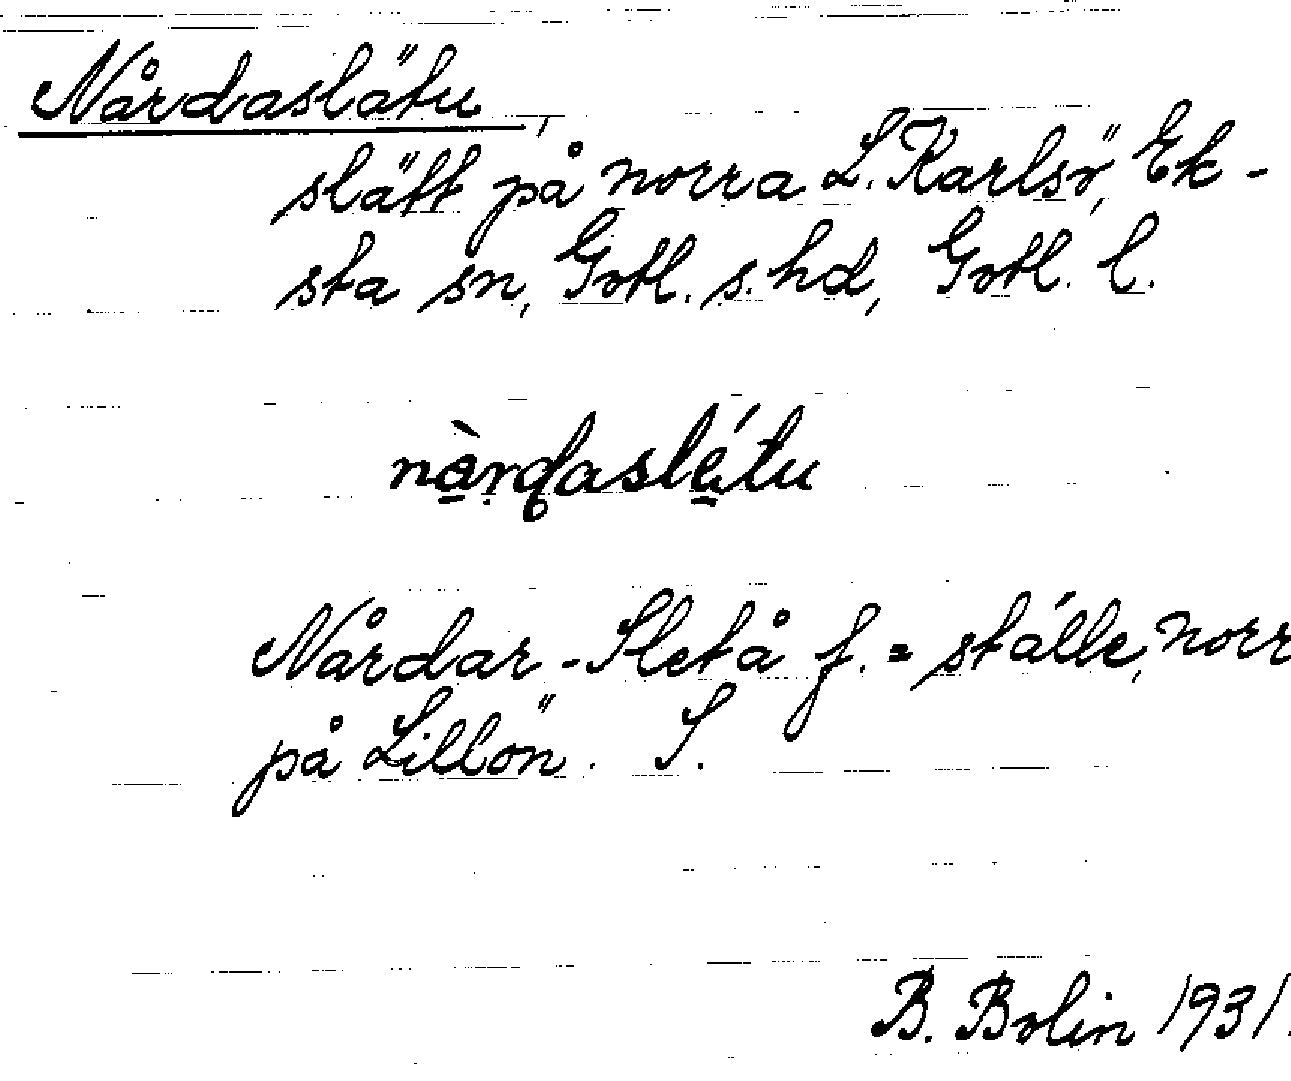 Nårdaslätu,
slätt på norra L. Karlsö, Ek-
sta sn, Gotl. s. hd, Gotl. l.
nàrdaslétu
Nårdar-Sletå f. = stålle, norr
på Lillön. S.
B. Bolin 1931.